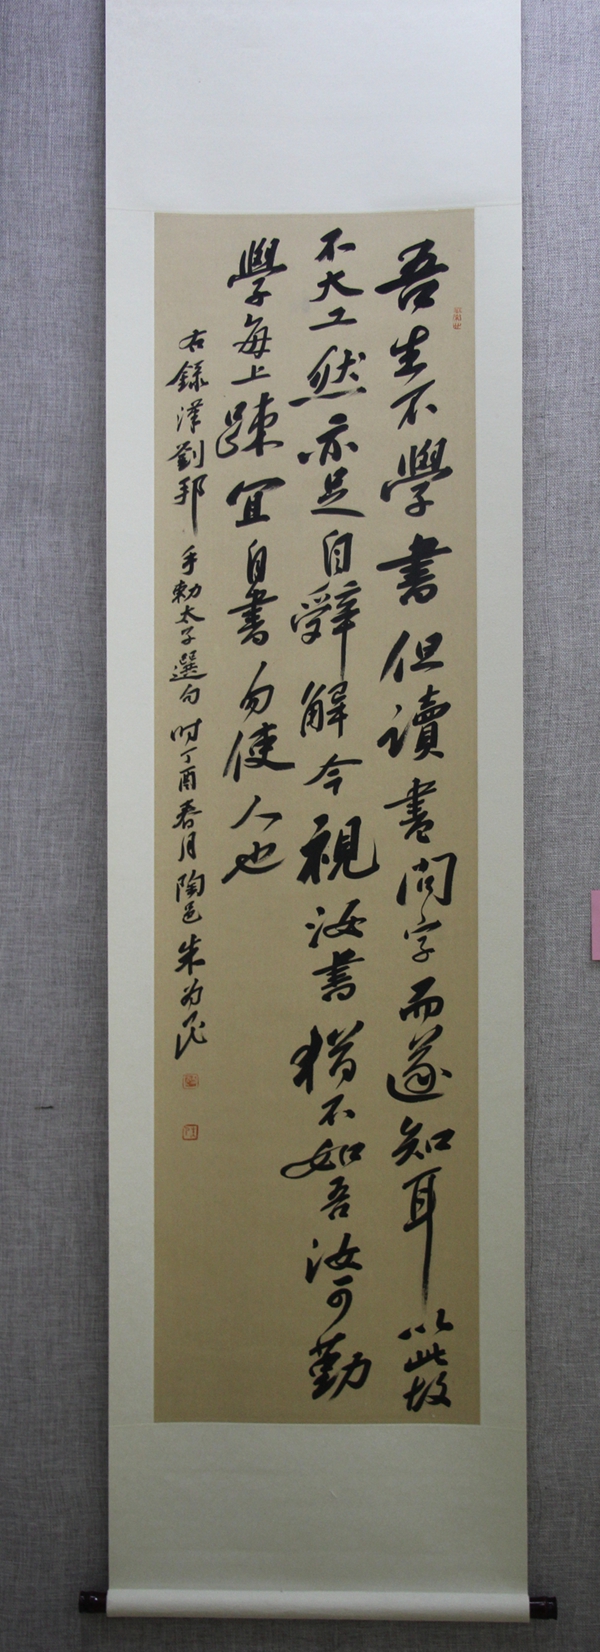 吾生不學書但讀書問字而遂知耳以此故
不大工然亦足自辭解今視汝書猶不如吾汝可勤
學每上疎宜自書勿使人也
右録漢劉邦手勅太子選句时丁酉春月陶邑朱为民